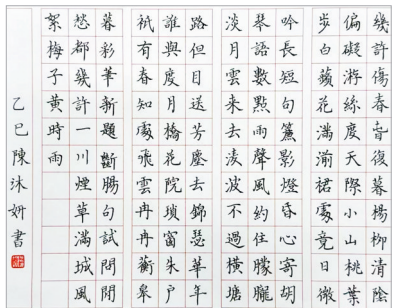 幾許傷春旾復暮楊柳清陰
偏礙游絲度天際小山桃葉
步白蘋花滿湔裙處竟日微
吟長短句簾影燈昏心寄胡
琴語數點雨聲風約住朦朧
淡月雲来去淩波不過橫塘
路但目送芳塵去錦瑟華年
誰與度月橋花院瑣窗朱戶
祇有春知處飛雲冉冉蘅皋
暮彩華新題斷腸句試問閒
愁都幾許一川煙草滿城風
絮梅子黃時雨
乙巳陳沐妍書